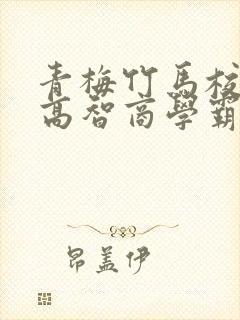 青梅竹馬校
高智商學霸
昂盖伊